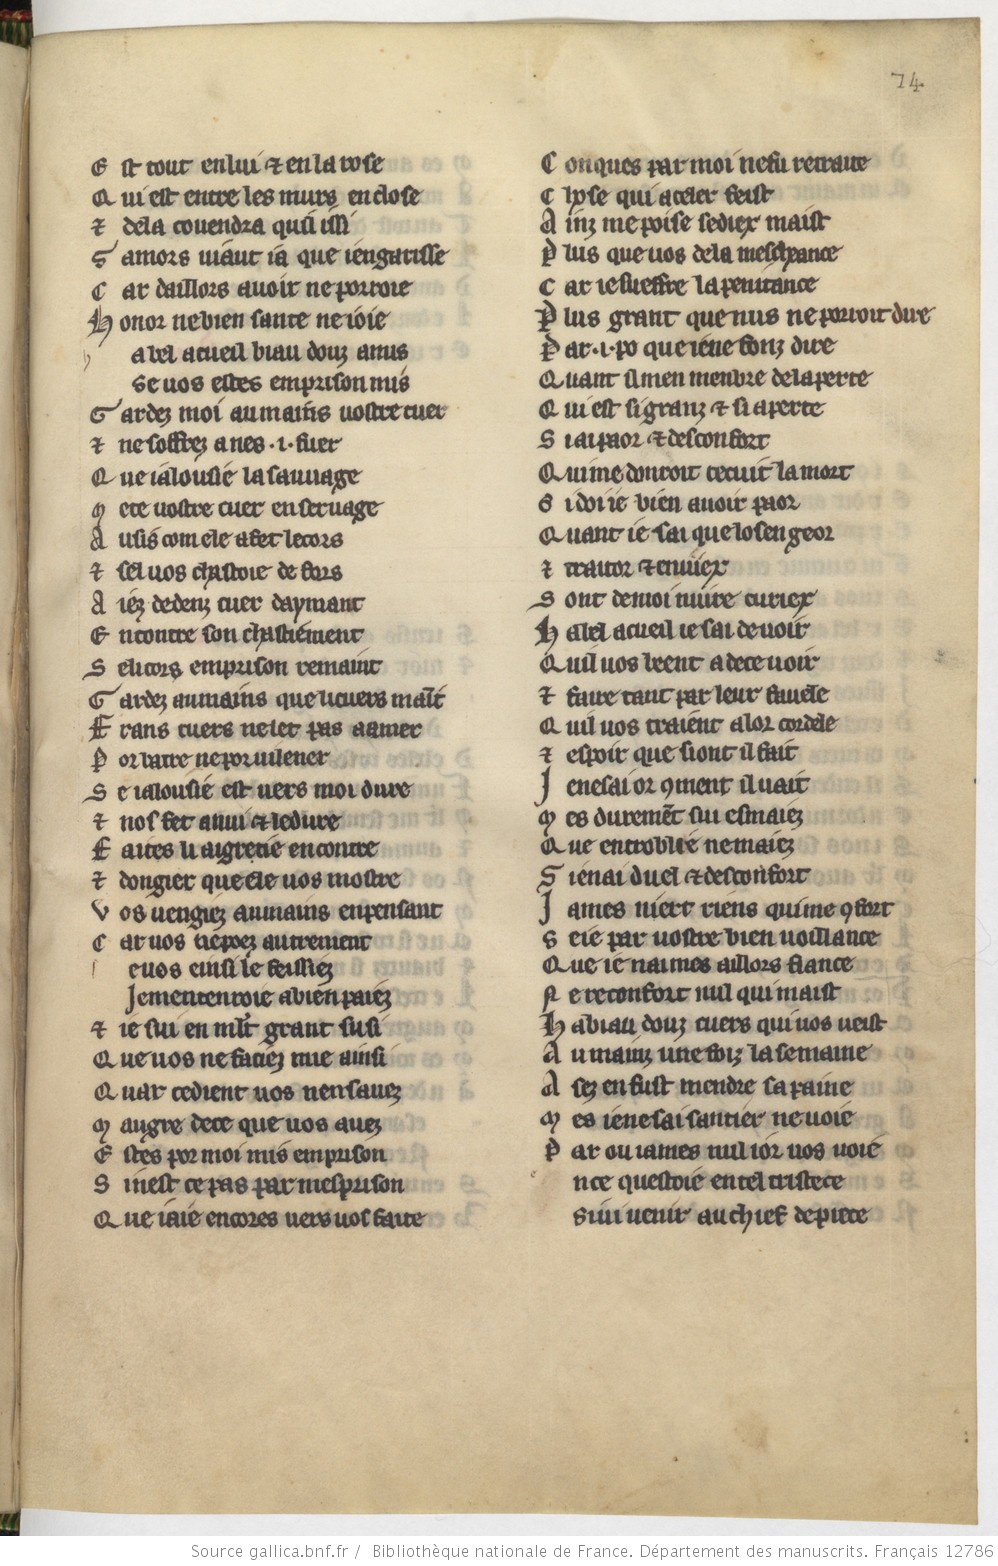 74
E st tout en lui ⁊ en la rose
Q ui est entre les murs enclose
⁊ de la couendra quil issi
S amors uiaut ia que ie ngarisse
C ar daillors auoir ne porroie
H onor ne bien sante ne ioie
h a bel acueil biau douz amis
Se uos estes emprison mis
G ardez moi au mains uostre cuer
⁊ ne soffrez a nes .i. fuer
Q ue ialousie la sauuage
M ete uostre cuer en seruage
A usis com ele a fet le cors
⁊ sel uos chastoie de fors
A iez dedenz cuer daymant
E ncontre son chastiement
S e li cors emprison remaint
G ardez au mains que li cuers maīt
F rans cuers ne let pas a amer
P or batre ne por uilener
S e ialousie est uers moi dure
⁊ uos fet anui ⁊ ledure
F aites li aigretie encontre
⁊ dongier que ele uos mostre
V os uengiez au mains en pensant
C ar uos ne poez autrement
e uos einsi le feissiez
Je me tenroie a bien paiez
⁊ ie sui en ml't grant susi
Q ue uos ne faciez mie ainsi
Q uar cedient uos nen sauez
M augre de ce que uos auez
E stes por moi mis emprison
S i nest ce pas par mesprison
Q ue iaie encores uers uos faite
C onques par moi ne fu retraite
C hose qui a celer feist
A inz me poise se diex maist
P lus que uos de la mescheance
C ar ie sueffre la penitance
P lus grant que nus ne porroit dire
P ar .i. po que ie ne fonz dire
Q uant il men menbre de la perte
Q ui est si granz ⁊ si aperte
S i ai paor ⁊ desconfort
Q ui me donroit ce cuit la mort
S i doi ie bien auoir paor
Q uant ie sai que losengeor
⁊ traitor ⁊ enuiex
S ont de moi nuire curiex
H a bel acueil ie sai de uoir
Q uil uos beent a deceuoir
⁊ faire tant par leur fauele
Q uil uos traient a lor cordele
⁊ espoir que si ont il fait
J e ne sai or 9ment il uait
M es duremēt sui esmaiez
Q ue entroblie ne maiez
S i en ai duel ⁊ desconfort
J ames niert riens qui me 9fort
S e ie par uostre bien uoillance
Q ue ie nai mes aillors fiance
N e reconfort nul qui maist
H a biau douz cuers qui uos ueist
A u mainz une foiz la semaine
A sez en fust mendre sa paine
M es ie ne sai santier ne uoie
P ar ou iames nul ior uos uoie
nce questoie en tel tristece
Si ui uenir au chief de piece
Source gallica.bnf.fr / Bibliothèque nationale de France. Département des manuscrits. Français 12786